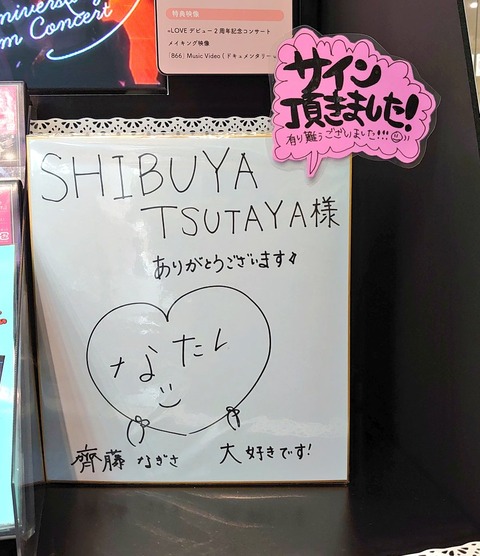 m Concert
特典映像
=LOVE デビュー2周年記念コンサート
メイキング映像
「866」Music Video (ドキュメンタリー v
サイン
頂きました!
有り難うございました!!!
SHIBUYA
TSUTAYA様
ありがとうございます♪
なたん
齊藤 なぎさ
大好きです!